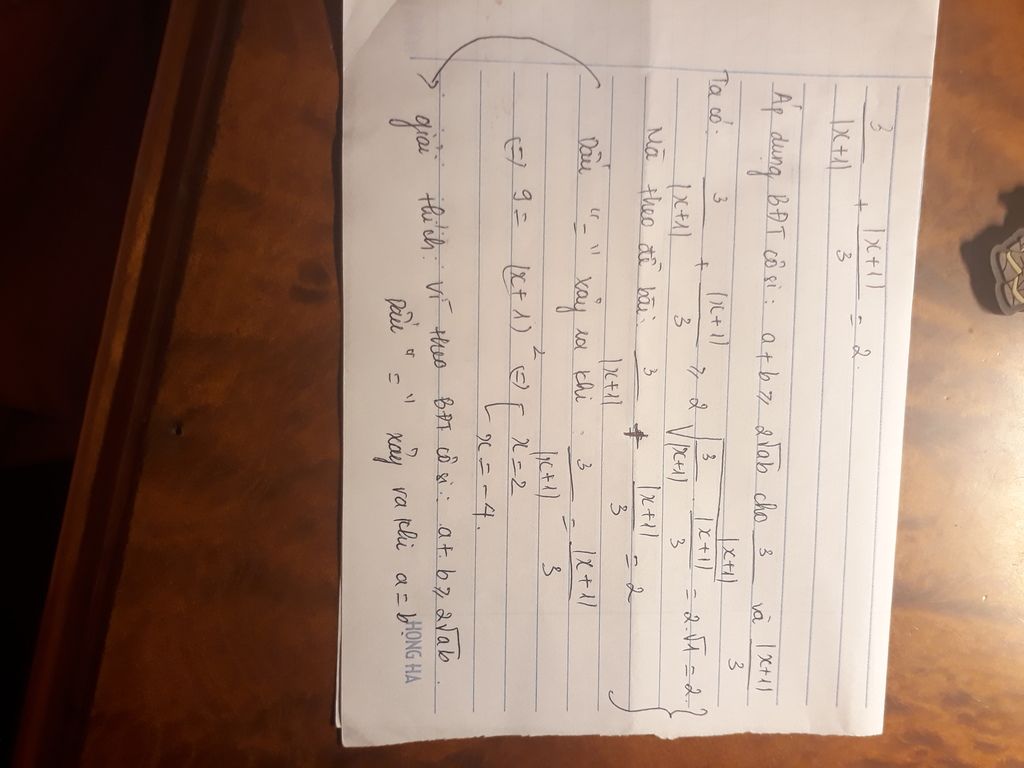 3/|x+1| + |x+1|/3 = 2.
Áp dụng BĐT cô si: a+b ≥ 2√ab cho 3/|x+1| và |x+1|/3
Ta có: 3/|x+1| + |x+1|/3 ≥ 2√(3/|x+1| . |x+1|/3) = 2.√1 = 2.
Mà theo đề bài: 3/|x+1| + |x+1|/3 = 2
Dấu "=" xảy ra khi. 3/|x+1| = |x+1|/3
(=) 9 = (x+1)² (=) [ x=2
[ x=-4.
giải thích: Vì theo BĐT cô si: a+b ≥ 2√ab.
Dấu "=" xảy ra khi a=b.
HONG HA